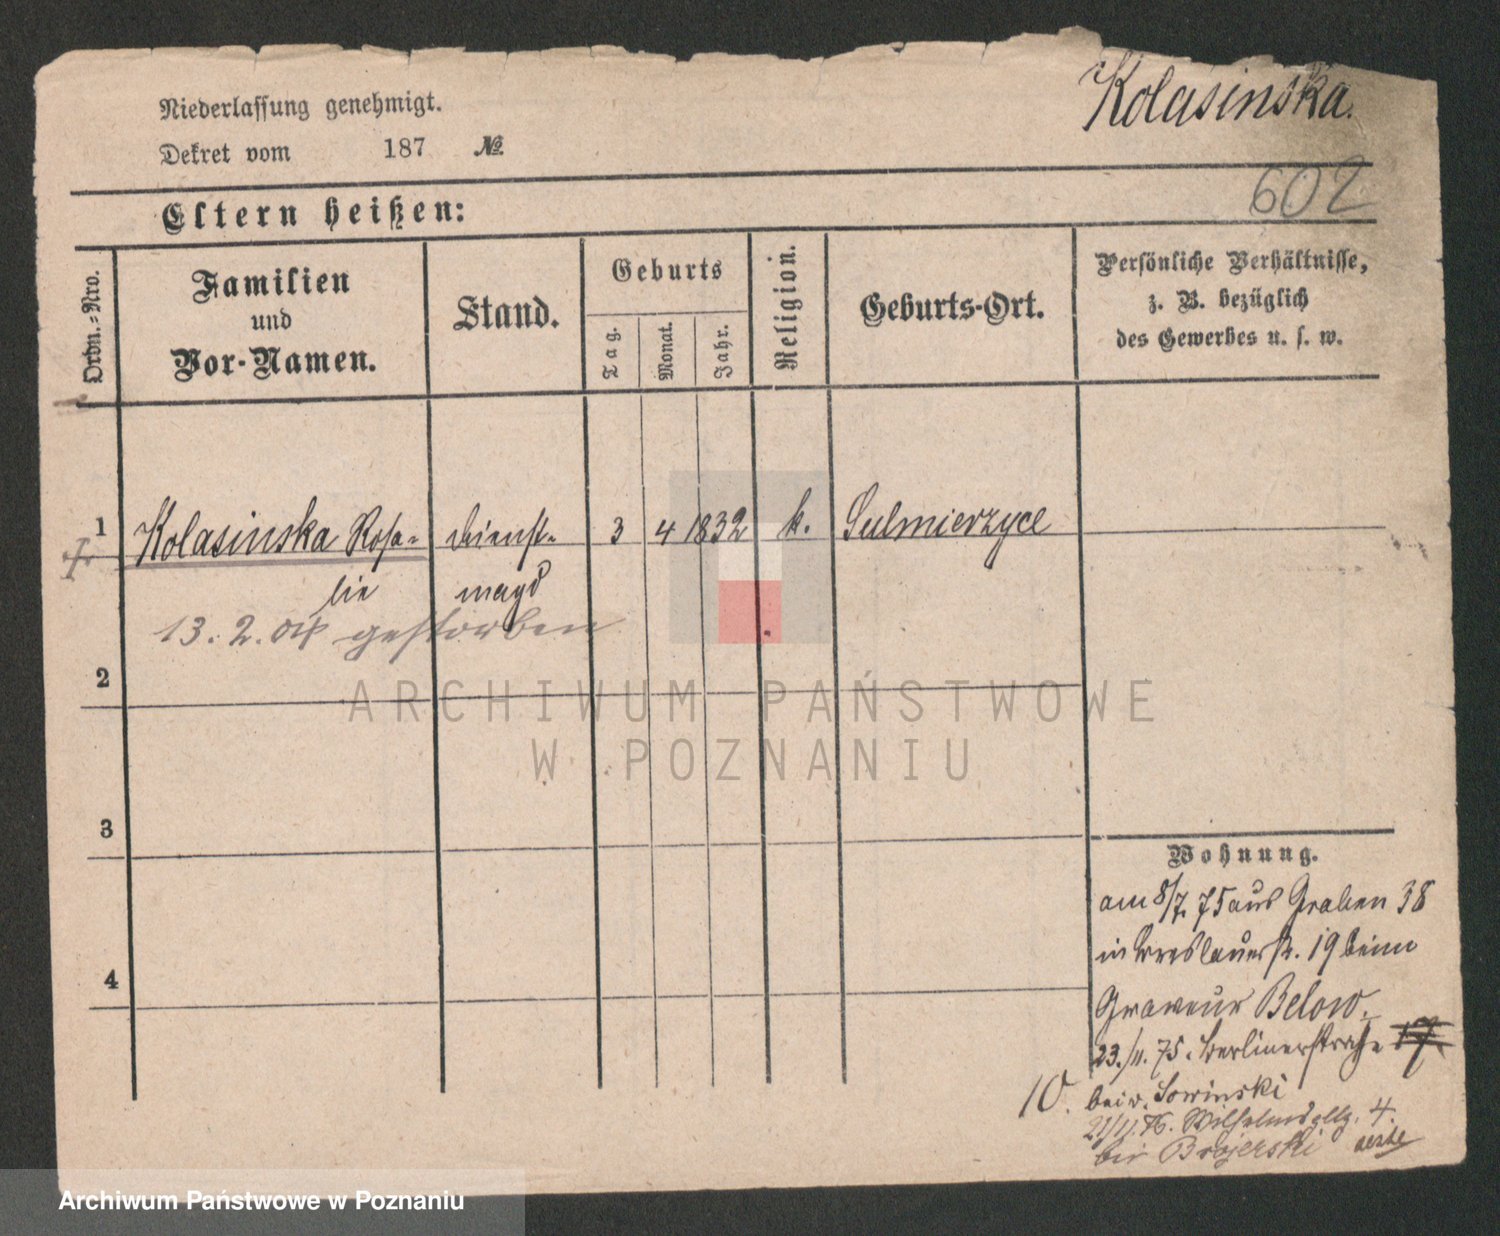 Kolasinska.
Niederlassung genehmigt.
Dekret vom 187 №.
602
Eltern heißen:
Ordn.-Nro.
Familien
und
Vor-Namen.
Stand.
Geburts
Tag.
Monat.
Jahr.
Religion.
Geburts-Ort.
Persönliche Verhältnisse,
z. B. bezüglich
des Gewerbes u. s. w.
1 Kolasinska Rosa- Dienst- 3 4 1832 k. Sulmierzyce
lie magd
13. 2. 04 gestorben
2
ARCHIWUM PAŃSTWOWE
W POZNANIU
3
Wohnung.
am 8/7. 75 aus Graben 38
in Breslauerstr. 19 beim
Graveur Below.
23./11. 75. Berlinerstraße 17
10. bei v. Sowinski
21/11. 76. Wilhelms 4.
bei Brojerski
4
Archiwum Państwowe w Poznaniu